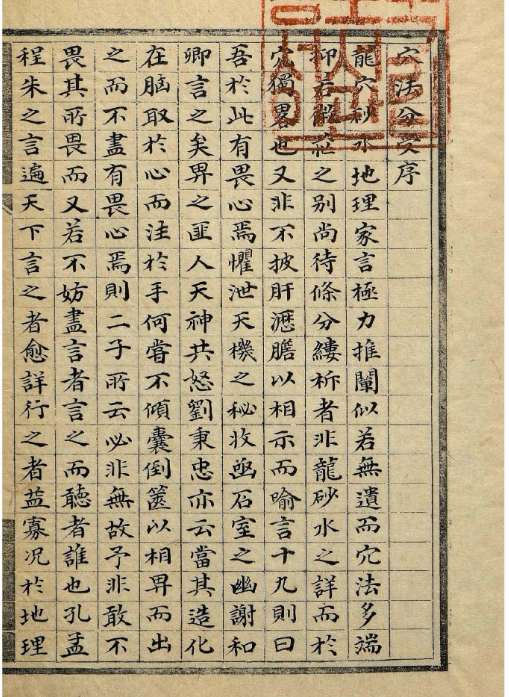 穴法分序
龍穴砂水地理家言極力推闡似若無遺而穴法多端
抑若之別尚待條分縷析者非龍砂水之詳而於
穴獨畧也又非不披肝瀝膽以相示而喻言十九則曰
吾於此有畏心焉懼泄天機之秘收凾石室之幽謝和
卿言之矣畀之匪人天神共怒劉秉忠亦云當其造化
在腦取於心而注於手何嘗不傾囊倒篋以相畀而出
之而不盡有畏心焉則二子所云必非無故予非敢不
畏其所畏而又若不妨盡言者言之而聽者誰也孔孟
程朱之言遍天下言之者愈詳行之者益寡况於地理